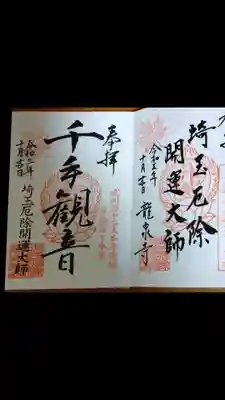 埼玉厄除
開運大師
令和三年
十月吉日
龍泉寺
奉拝
千手観音
令和三年
十月吉日
埼玉厄除開運大師